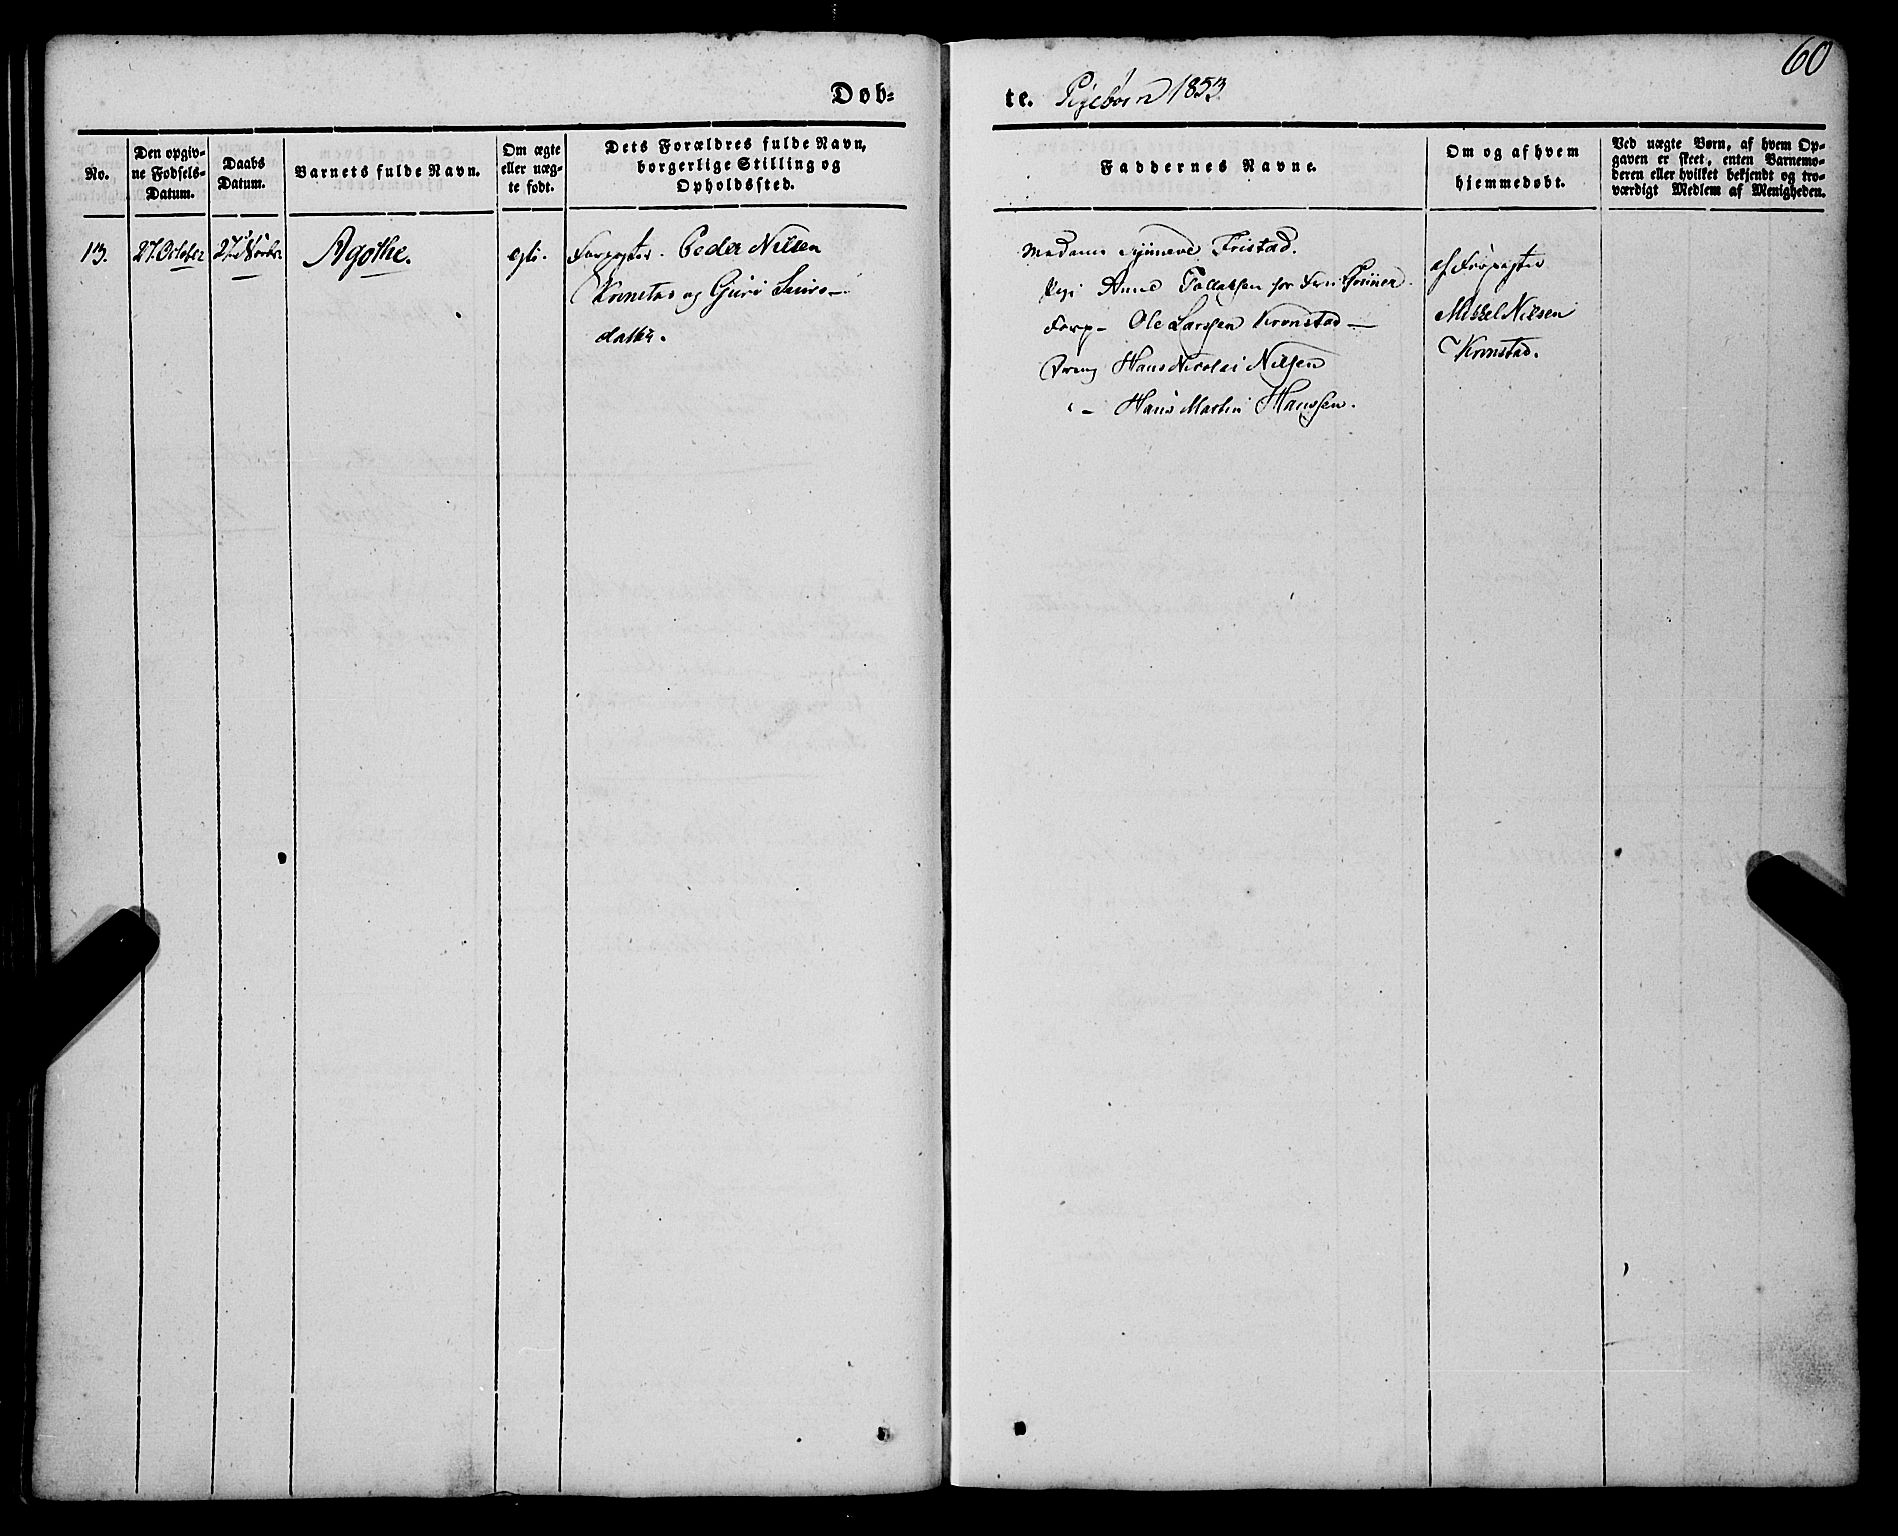 60
Dob-
te. Pigebørn 1853
No.
Den opgiv-
ne Fodsels-
Datum.
Daabs
Datum.
Barnets fulde Navn.
Om ægte
eller uæg-
te født.
Dets Forældres fulde Navn,
borgerlige Stilling og
Opholdssted.
Faddernes Navne.
Om og af hvem
hjemmedøbt.
Ved uægte Børn, af hvem Op-
gaven er skeet, enten Barnemo-
deren eller hvilket bekjendt og tro-
værdigt Medlem af Menigheden.
13.
27. October
27.
Agothe.
egte.
Peder Nilsen
Kronstad og Guri
datter.
Madame Synneve Fristad.
Pige Anne Tollaksen for
Forp- Ole Larssen Kronstad
Dreng Hans Nicolai Nilsen
- Hans Martin Hanssen.
af
Mikkel Nilsen
Kronstad.